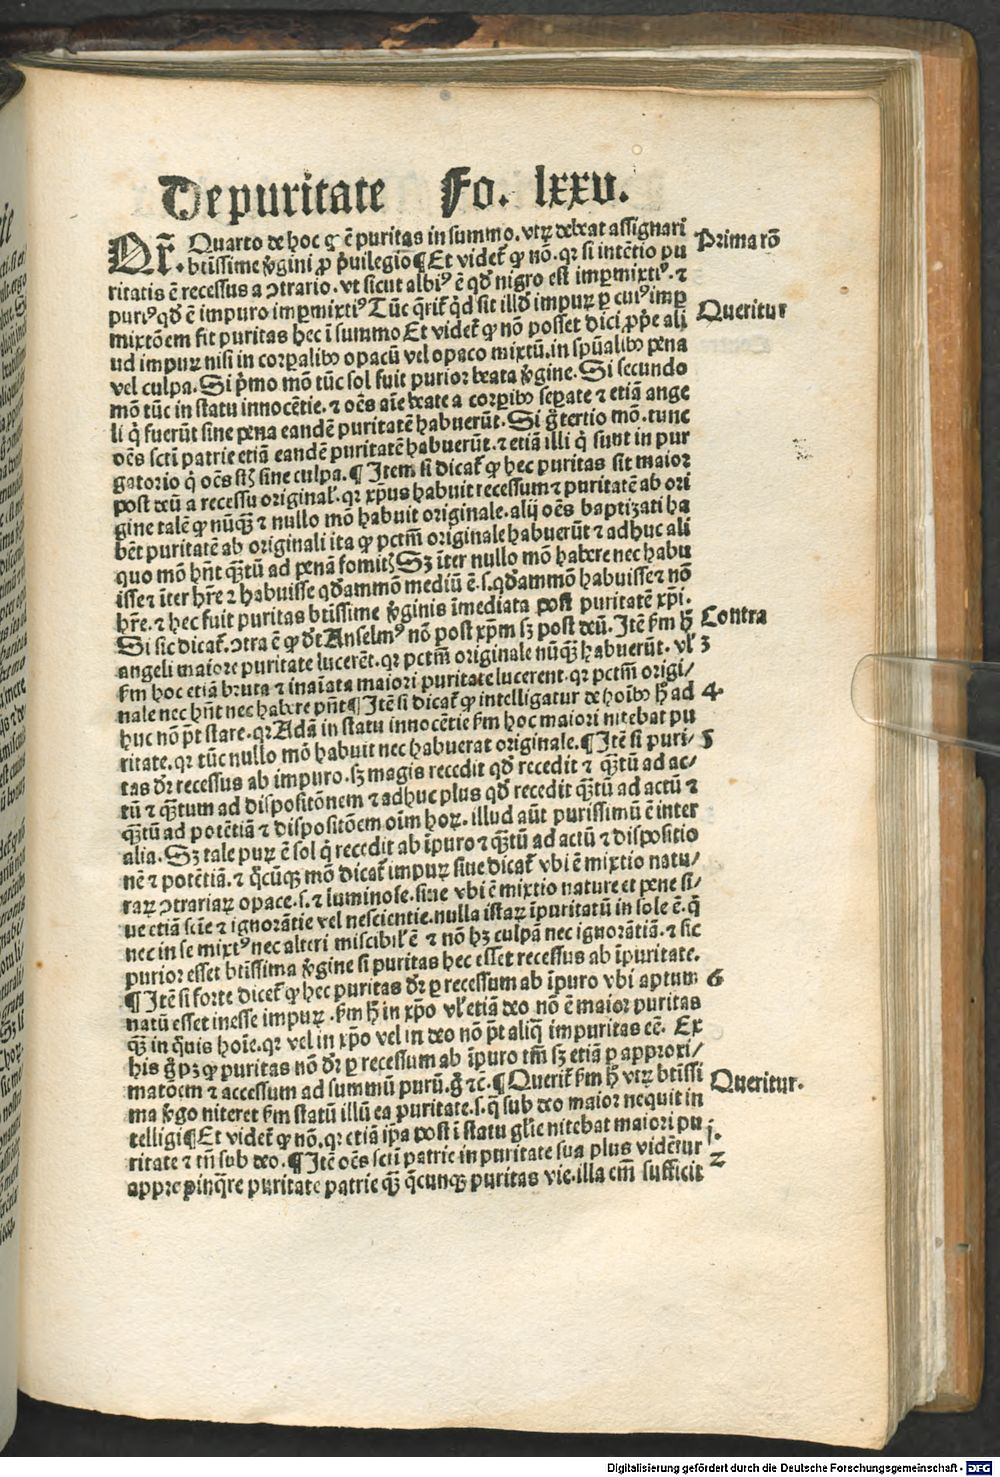 De puritate Fo. lxxv.
Qr̄. Quarto de hoc qꝫ ē puritas in summo. vtꝝ debeat assignari
btissime ꝟgini ꝓ p̄uilegio ¶ Et videt᷑ ꝙ nō. qꝛ si intētio pu
ritatis ē recessus a ↄtrario. vt sicut albiꝰ ē qđ nigro est imꝑmixtiꝰ. ⁊
puriꝰ qđ ē impuro imꝑmixtiꝰ Tūc q̄rit᷑ qͥd sit illđ impuꝝ ꝑ cuiꝰ imꝑ
mixtōem fit puritas hec ī summo Et videt᷑ ꝙ nō posset dici ꝓpe ali
ud impuꝝ nisi in corꝑalibꝰ opacū vel opaco mixtū. in spūalibꝰ pena
vel culpa. Si pͥmo mō tūc sol fuit purior beata ꝟgine. Si secundo
mō tūc in statu innocētie. ⁊ oēs aīe beate a corꝑibꝰ seꝑate ⁊ etiā ange
li qͥ fuerūt sine pena eandē puritatē habuerūt. Si gͦ tertio mō. tunc
oēs scti patrie etiā eandē puritatē habuerūt. ⁊ etiā illi qͥ sunt in pur
gatorio qͥ oēs sūt sine culpa. ¶ Item si dicat᷑ ꝙ hec puritas sit maior
post deū a recessu original᷑. qꝛ xp̄us habuit recessum ⁊ puritatē ab ori
gine talē ꝙ nūqꝫ ⁊ nullo mō habuit originale. alij oēs baptizati ha
bēt puritatē ab originali ita ꝙ pctm̄ originale habuerūt ⁊ adhuc ali
quo mō hn̄t qꝫtū ad penā fomitꝭ Sꝫ īter nullo mō habere nec habu
isse ⁊ īter hr̄e ⁊ habuisse qđammō mediū ē. s. qđammō habuisse ⁊ nō
hr̄e. ⁊ hec fuit puritas btissime ꝟginis īmediata post puritatē xp̄i.
Si sic dicat᷑. ↄtra ē ꝙ dt Anselmꝰ nō post xp̄m sꝫ post deū. Itē ẜm h̄
angeli maiore puritate lucerēt. qꝛ pctm̄ originale nūqꝫ habuerūt. vl᷑
ẜm hoc etiā bruta ⁊ inaīata maiori puritate lucerent. qꝛ pctm̄ origi/
nale nec hn̄t nec habere pn̄t ¶ Itē si dicat᷑ ꝙ intelligatur de hoībꝰ h̄ ad
huc nō pt stare. qꝛ Adā in statu innocētie ẜm hoc maiori nitebat pu
ritate. qꝛ tūc nullo mō habuit nec habuerat originale. ¶ Itē si puri/
tas dr̄ recessus ab impuro. sꝫ magis recedit qđ recedit ⁊ qꝫtū ad ac/
tū ⁊ qꝫtum ad dispositōnem ⁊ adhuc plus qđ recedit qꝫtū ad actū ⁊
qꝫtū ad potētiā ⁊ dispositōem oīm hoꝝ. illud aūt purissimū ē inter
alia. Sꝫ tale puꝝ ē sol qͥ recedit ab īpuro ⁊ qꝫtū ad actū ⁊ dispositio
nē ⁊ potētiā. ⁊ qͥcūqꝫ mō dicat᷑ impuꝝ siue dicat᷑ vbi ē mixtio natu/
raꝝ ↄtrariaꝝ opace. s. ⁊ luminose. siue vbi ē mixtio nature et pene si/
ue etiā scīe ⁊ ignorātie vel nescientie. nulla istaꝝ īpuritatū in sole ē. qͥ
nec in se mixtꝰ nec alteri miscibil᷑ ē ⁊ nō hꝫ culpā nec ignorātiā. ⁊ sic
purior esset btissima ꝟgine si puritas hec esset recessus ab īpuritate.
¶ Itē si forte dicet᷑ ꝙ hec puritas dr̄ ꝑ recessum ab īpuro vbi aptum
natū esset inesse impuꝝ. ẜm h̄ in xp̄o vl᷑ etiā deo nō ē maior puritas
qꝫ in qͣuis hoīe. qꝛ vel in xp̄o vel in deo nō pt aliq̄ impuritas eē. Ex
his gͦ pꝫ ꝙ puritas nō dr̄ ꝑ recessum ab īpuro tm̄ sꝫ etiā ꝑ approxi/
matōem ⁊ accessum ad summū purū. gͦ ⁊c. ¶ Querit᷑ ẜm h̄ vtꝝ btissi
ma ꝟgo niteret ẜm statū illū ea puritate. s. q̄ sub deo maior nequit in
telligi ¶ Et videt᷑ ꝙ nō. qꝛ etiā ip̄a post ī statu gl̄ie nitebat maiori pu
ritate ⁊ tn̄ sub deo. ¶ Itē oēs scti patrie in puritate sua plus vidētur
appropinq̄re puritate patrie qꝫ q̄cunqꝫ puritas vie. illa em̄ sufficit
Prima rō
Queritur
Contra
3
4.
5
6
Queritur.
j.
2
Digitalisierung gefördert durch die Deutsche Forschungsgemeinschaft - DFG